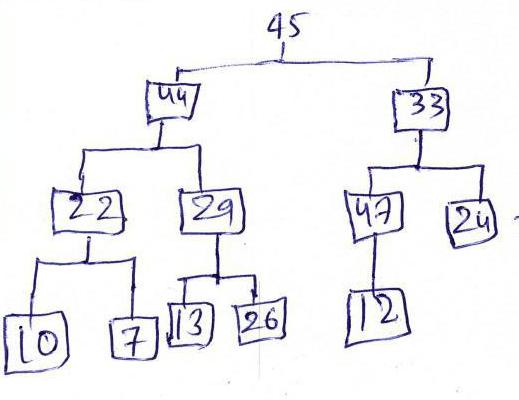 45
44 33
22 29 47 24
10 7 13 26 12